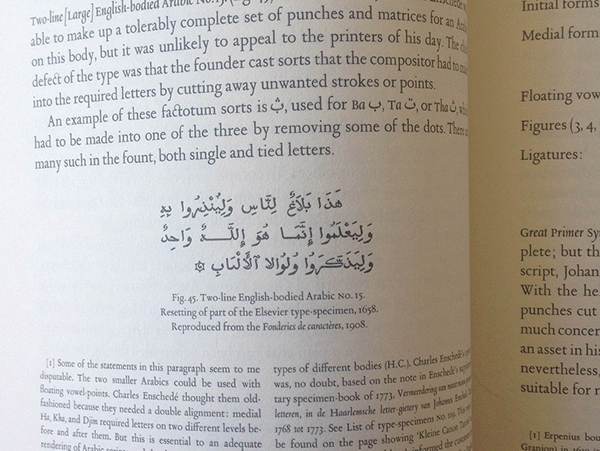 Two-line [Large] English-bodied Arabic No. 15.
able to make up a tolerably complete set of punches and matrices for an
on this body, but it was unlikely to appeal to the printers of his day. The
defect of the type was that the founder cast sorts that the compositor had to
into the required letters by cutting away unwanted strokes or points.
An example of these factotum sorts is used for Ba ب, Ta ت, or Tha ث,
had to be made into one of the three by removing some of the dots. There
many such in the fount, both single and tied letters.
هَذَا بَلَاغٌ لِنَّاسِ وَلِيُنْذِرُوا بِهِ
وَلِيَعْلَمُوا إِنَّمَا هُوَ وَاحِدٌ
وَلِيَدَّكَرُوا وُلُوالا ٱلْأَلْبَابِ
Fig. 45. Two-line English-bodied Arabic No. 15.
Resetting of part of the Elsevier type-specimen, 1658.
Reproduced from the Fonderies de caractères, 1908.
[1] Some of the statements in this paragraph seem to me
disputable. The two smaller Arabics could be used with
floating vowel-points. Charles Enschedé thought them old-
fashioned because they needed a double alignment: medial
Ha, Kha, and Djim required letters on two different levels be-
fore and after them. But this is essential to an adequate
rendering of Arabic script
types of different bodies (H.C.). Charles Enschedé's
was, no doubt, based on the note in Enschedé's
tary specimen-book of 1773.
letteren, in de Haarlemsche letter-gietery van Johannes Enschedé
1768 tot 1773. See List of type-specimens No. 119. This
be found on the page showing 'Kleine Canon
Initial forms
Medial form
Floating vow
Figures (3, 4,
Ligatures:
Great Primer Sy
plete; but th
script, Johan
With the he
punches cut
much concer
an asset in his
nevertheless,
suitable for r
[1] Erpenius bou